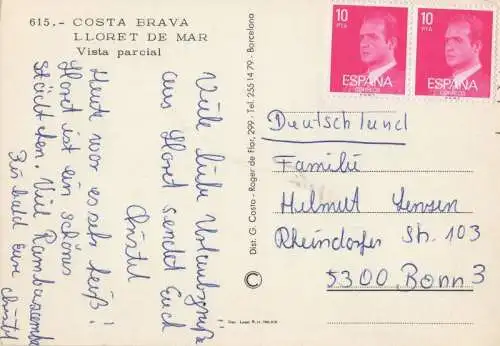 615.- COSTA BRAVA
LLORET DE MAR
Vista parcial
Viele liebe Urlaubsgrüße
aus Lloret sendet Euch
Christel
Heute war es sehr heiß!
Lloret ist ein schönes
Städtchen. Viel
Bis bald Eure Christel
Dist. G. Costa - Roger de Flor, 299 - Tel. 255 14 79 - Barcelona
10
PTA
ESPAÑA
CORREOS
10
PTA
ESPAÑA
CORREOS
Deutschland
Familie
Helmut Jensen
Rheindorfer Str. 103
5300 Bonn 3